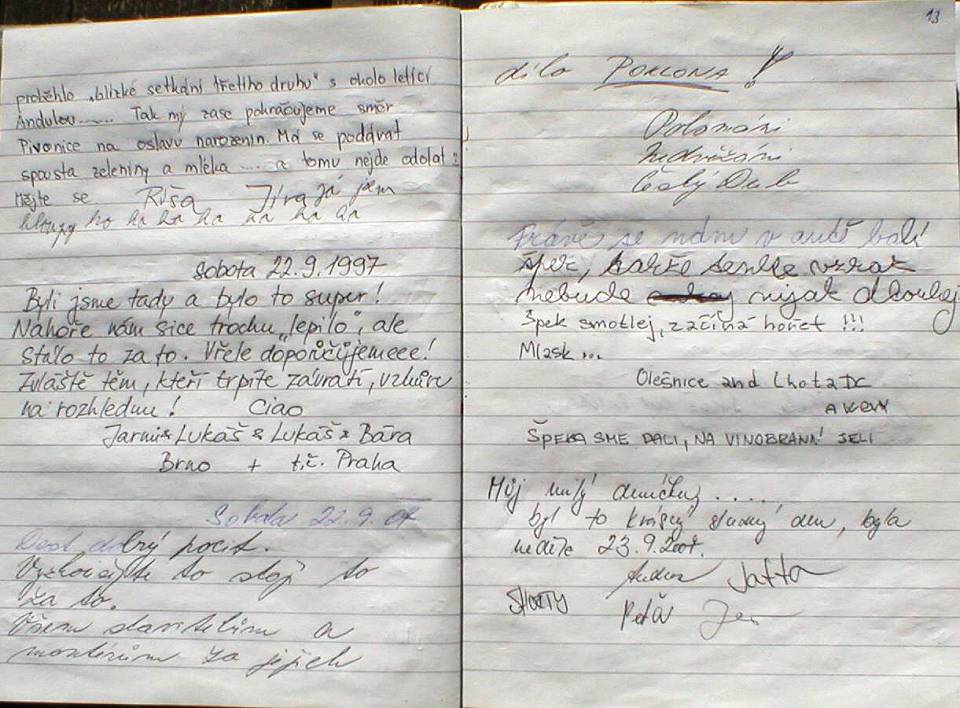 proběhlo „blízké setkání třetího druhu“ s okolo letící
Andulou...... Tak my zase pokračujeme směr
Pivonice na oslavu narozenin. Má se podávat
spousta zeleniny a mléka .... a tomu nejde odolat!
Mějte se Ríša Jíra já jsem
hloupý ho ha ha ha ha ha ha
Sobota 22.9.1997
Byli jsme tady a bylo to super!
Nahoře nám sice trochu „lepilo“, ale
stálo to za to. Vřele doporučujemeee!
Zvláště těm, kteří trpíte závratí, vzhůru
na rozhlednu! Ciao
Jarmi & Lukáš & Lukáš & Bára
Brno + t.č. Praha
Sobota 22.9.01
Dost dobrý pocit.
Vyzkoušejte to stojí to
za to.
Všem stavitelům a
montérům za jejich
13
dílo POKLONA!
Polománi
Český Dub
Právě se nám v autě pálí
špek, takže tenhle vzkaz
nebude nijak dlouhej
Špek smotlej, začíná hořet !!!
Mlask...
Olešnice and Lhota DC
ŠPEKA SME DALI, NA VINOBRANÍ JELI
Můj milý deníčku, .....
byl to krásný slunný den, byla
neděle 23.9.2001.
Jatta
Peťa